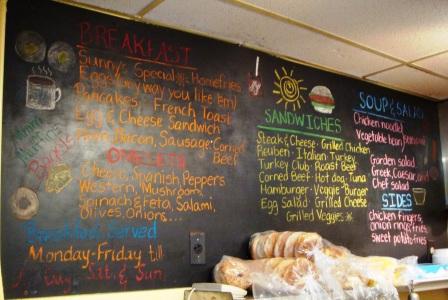 BREAKFAST
Sunny's Special- Homefries
Eggs (Any way you like 'em)
Pancakes - French Toast
Egg & Cheese Sandwich
Ham, Bacon, Sausage, Corned
Beef
Bagels
OMELETS
Cheese, Spanish, Peppers
Western, Mushroom,
Spinach & Feta, Salami,
Olives, Onions...
Breakfast Served
Monday-Friday till
Sat. & Sun.
SANDWICHES
Steak & Cheese · Grilled Chicken
Reuben · Italian · Turkey
Turkey Club · Roast Beef
Corned Beef · Hot dog · Tuna
Hamburger · Veggie Burger
Egg Salad · Grilled Cheese
Grilled Veggies
SOUP & SALAD
Chicken noodle
Vegetable
Garden salad
Greek, Caesar, and
Chef salad
SIDES
Chicken fingers,
onion rings,
sweet potato fries